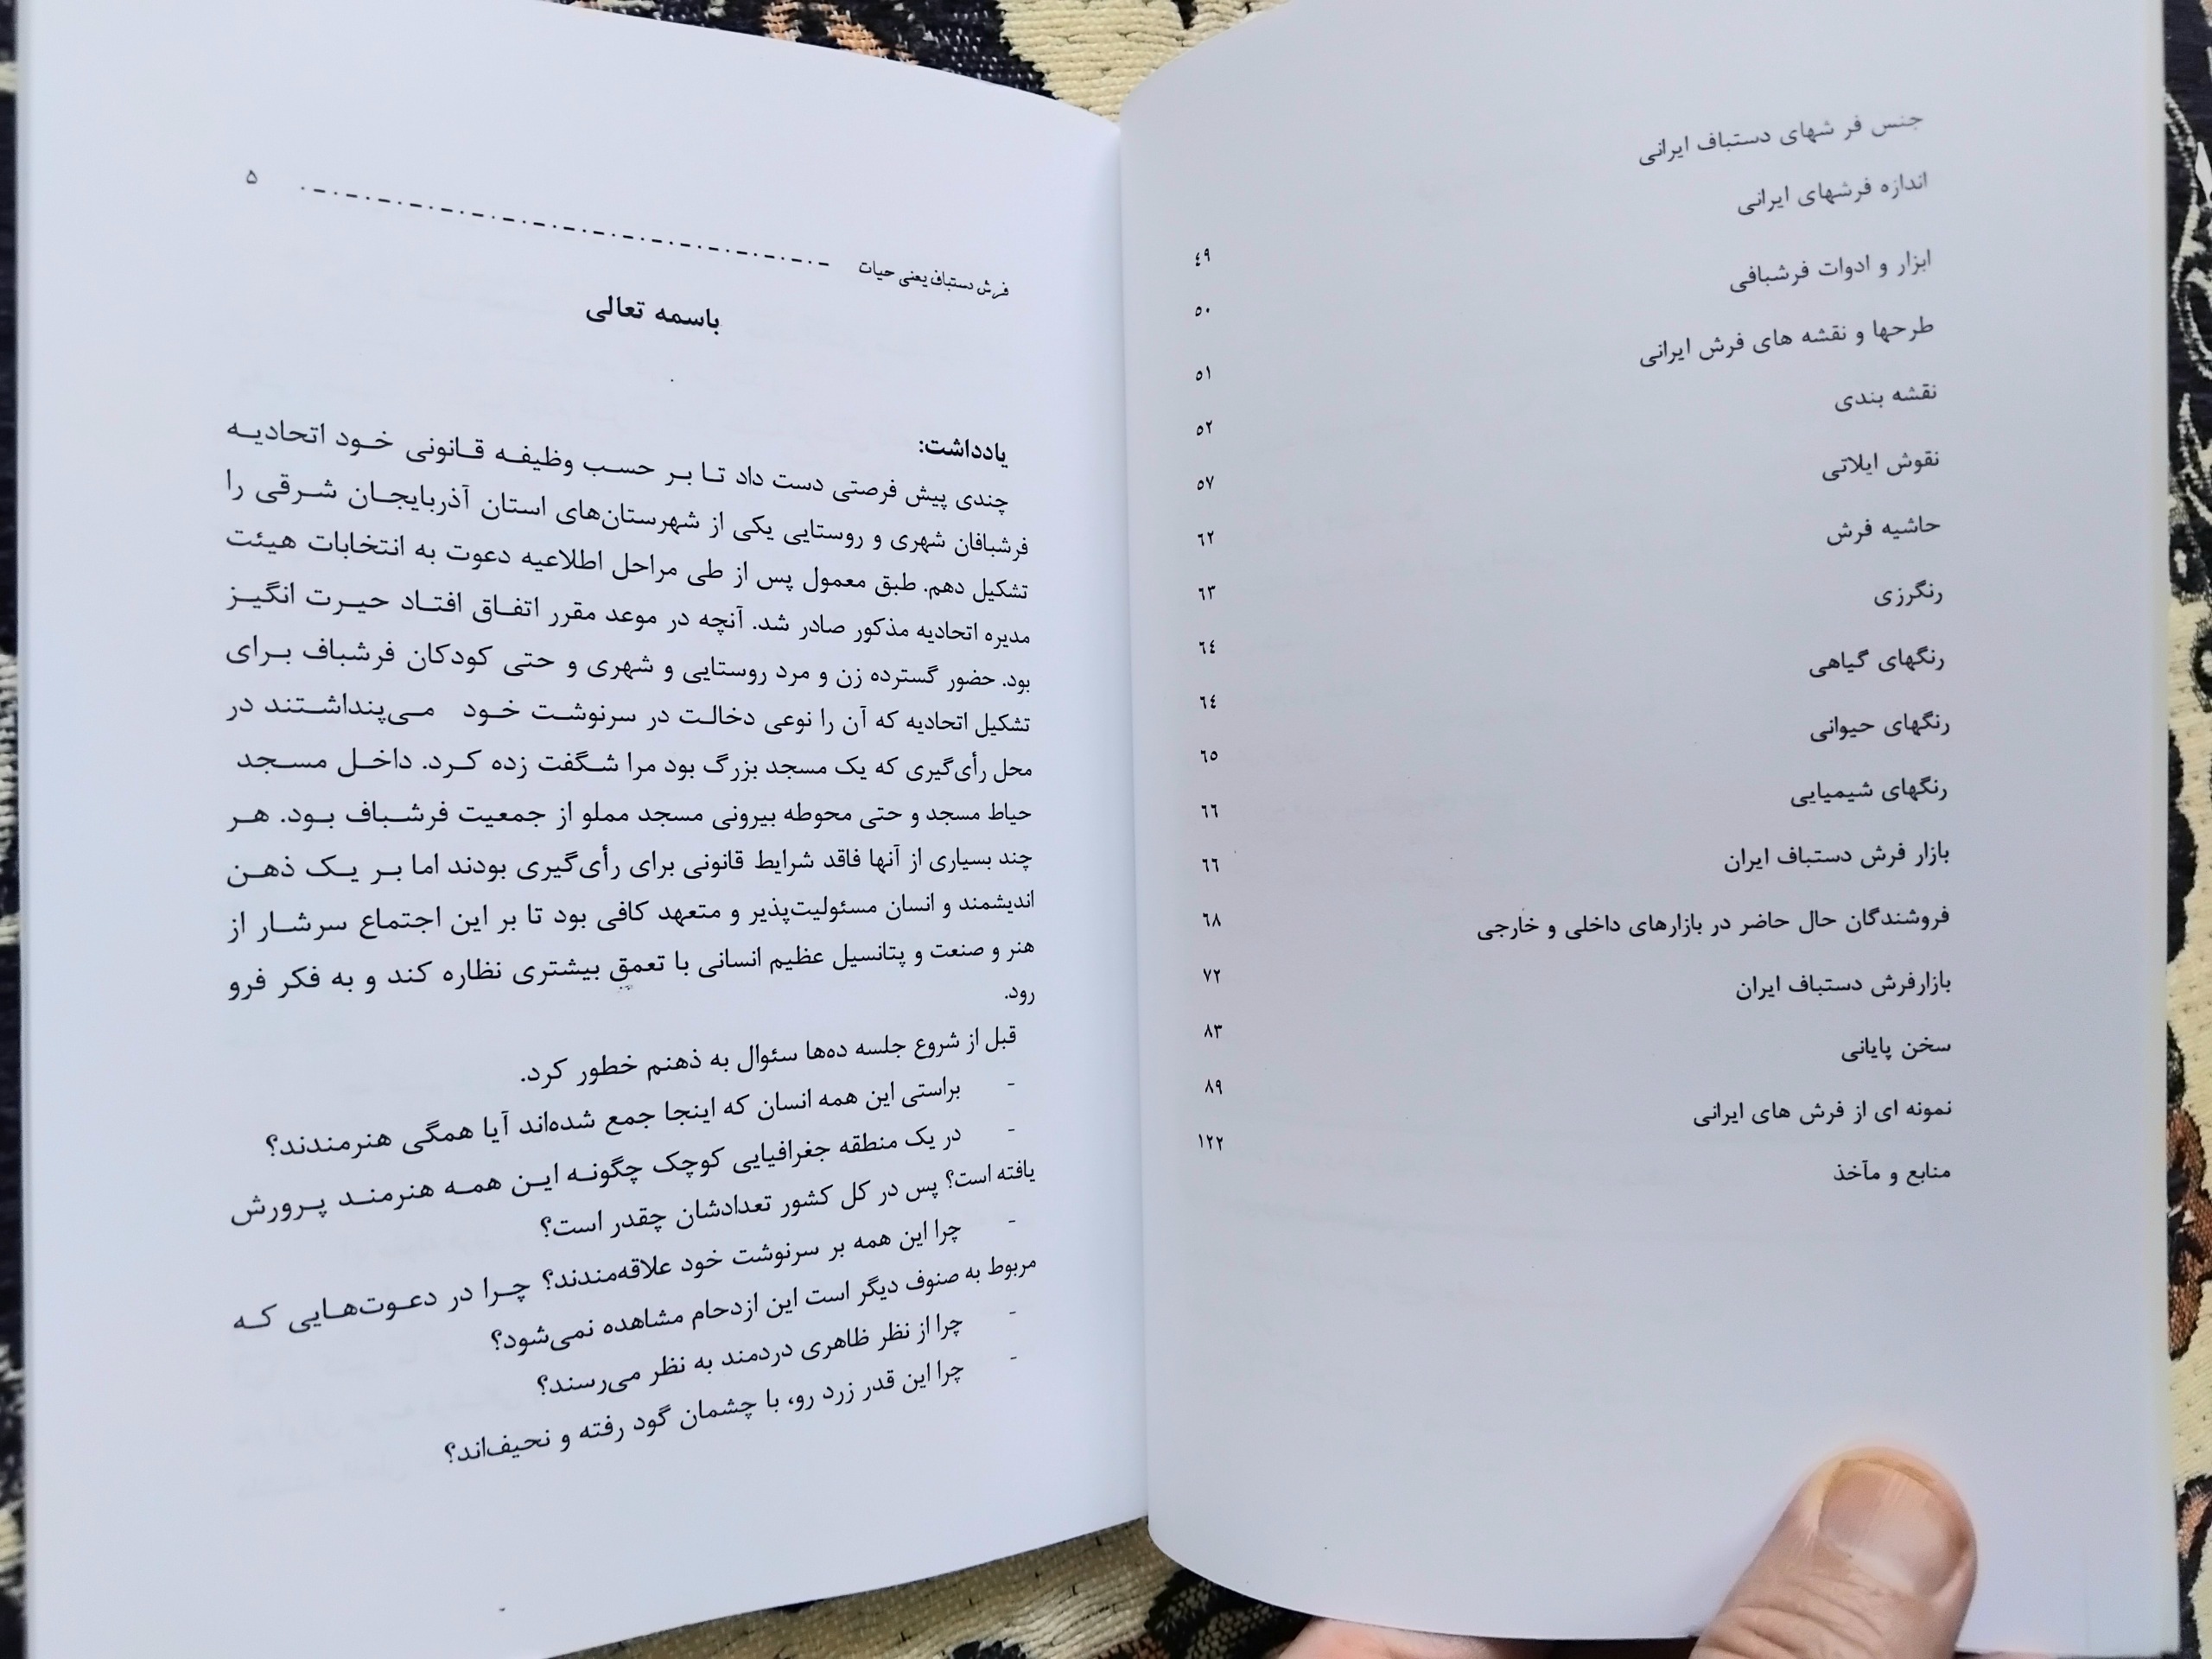 جنس فر شهای دستباف ایرانی ٤٩
اندازه فرشهای ایرانی ٥٠
ابزار و ادوات فرشبافی ٥١
طرحها و نقشه های فرش ایرانی ٥٢
نقشه بندی ٥٧
نقوش ایلاتی ٦٢
حاشیه فرش ٦٣
رنگرزی ٦٤
رنگهای گیاهی ٦٤
رنگهای حیوانی ٦٥
رنگهای شیمیایی ٦٦
بازار فرش دستباف ایران ٦٦
فروشندگان حال حاضر در بازارهای داخلی و خارجی ٦٨
بازارفرش دستباف ایران ٧٢
سخن پایانی ٨٣
نمونه ای از فرش های ایرانی ٨٩
منابع و مآخذ ١٢٢
فرش دستباف یعنی حیات ۵
باسمه تعالی
یادداشت:
چندی پیش فرصتی دست داد تا بر حسب وظیفه قانونی خود اتحادیه
فرشبافان شهری و روستایی یکی از شهرستان‌های استان آذربایجان شرقی را
تشکیل دهم. طبق معمول پس از طی مراحل اطلاعیه دعوت به انتخابات هیئت
مدیره اتحادیه مذکور صادر شد. آنچه در موعد مقرر اتفاق افتاد حیرت انگیز
بود. حضور گسترده زن و مرد روستایی و شهری و حتی کودکان فرشباف برای
تشکیل اتحادیه که آن را نوعی دخالت در سرنوشت خود می‌پنداشتند در
محل رأی‌گیری که یک مسجد بزرگ بود مرا شگفت زده کرد. داخل مسجد
حیاط مسجد و حتی محوطه بیرونی مسجد مملو از جمعیت فرشباف بود. هر
چند بسیاری از آنها فاقد شرایط قانونی برای رأی‌گیری بودند اما بر یک ذهن
اندیشمند و انسان مسئولیت‌پذیر و متعهد کافی بود تا بر این اجتماع سرشار از
هنر و صنعت و پتانسیل عظیم انسانی با تعمق بیشتری نظاره کند و به فکر فرو
رود.
قبل از شروع جلسه ده‌ها سئوال به ذهنم خطور کرد.
- براستی این همه انسان که اینجا جمع شده‌اند آیا همگی هنرمندند؟
- در یک منطقه جغرافیایی کوچک چگونه این همه هنرمند پرورش
یافته است؟ پس در کل کشور تعدادشان چقدر است؟
- چرا این همه بر سرنوشت خود علاقه‌مندند؟ چرا در دعوت‌هایی که
مربوط به صنوف دیگر است این ازدحام مشاهده نمی‌شود؟
- چرا از نظر ظاهری دردمند به نظر می‌رسند؟
- چرا این قدر زرد رو، با چشمان گود رفته و نحیف‌اند؟